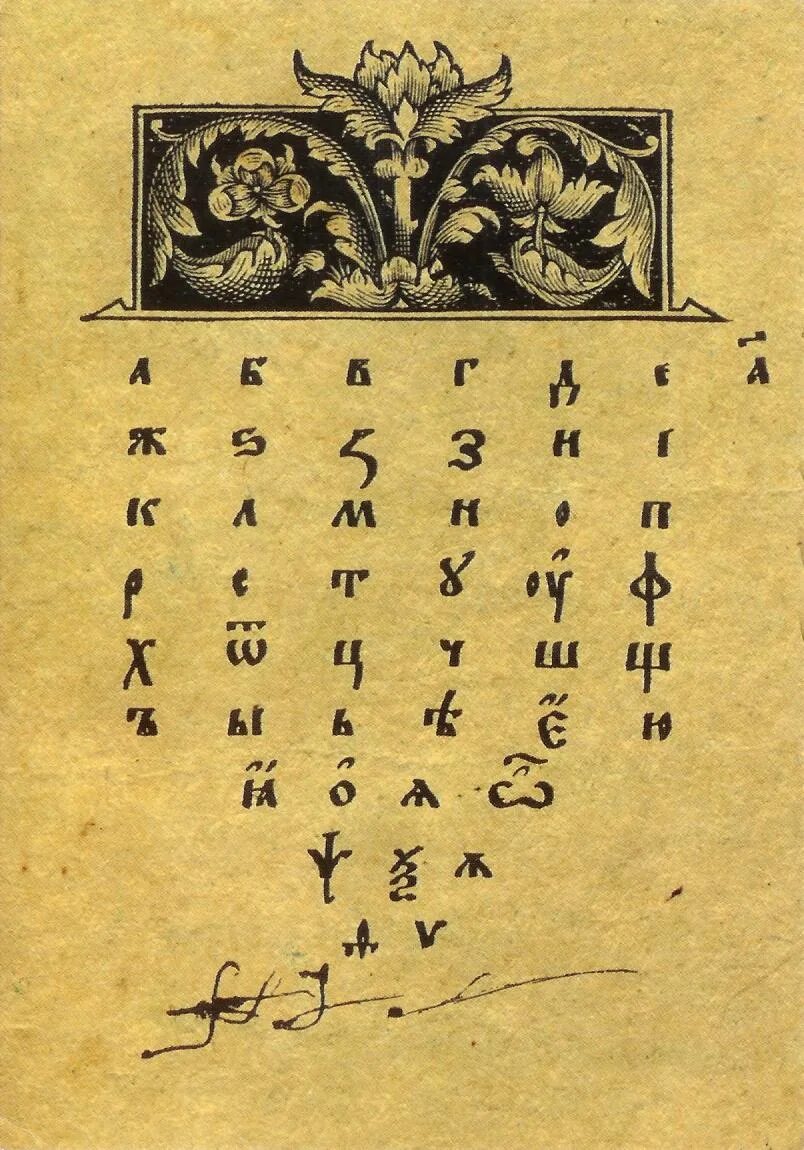 а б в г д є
а҃
ж ѕ ꙁ з и і
к л м н о п
р с т ꙋ оу҆ ф
х ѿ ц ч ш щ
ъ ы ь ѣ є҆́ ю
ꙗ҆́ о҆ ѧ ѽ
ѱ ѯ ѧ
ѳ ѵ